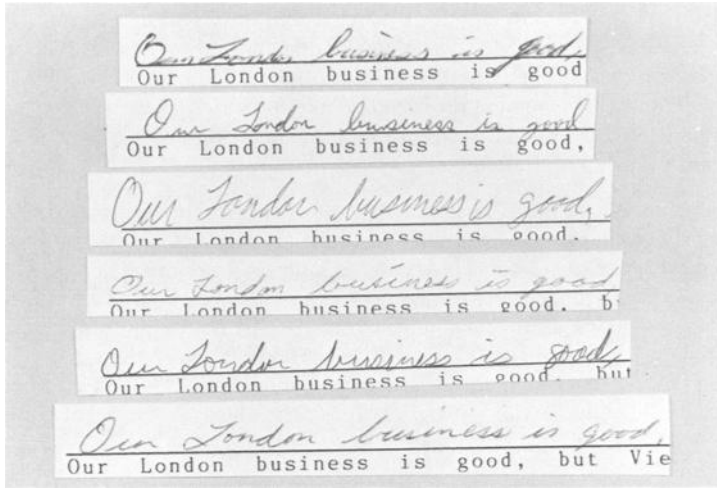 Our London business is good,
Our London business is good
Our London business is good
Our London business is good,
Our London business is good,
Our London business is good,
Our London business is good
Our London business is good, b
Our London business is good,
Our London business is good, but
Our London business is good,
Our London business is good, but Vie